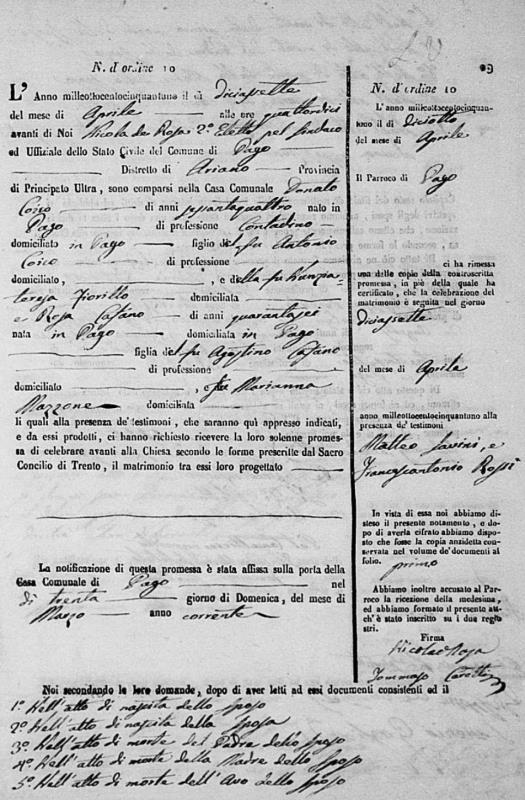 N. d'ordine 10
L' Anno milleottocentocinquantuno il dì diciassette
del mese di Aprile alle ore quattordici
avanti di Noi Nicola de Rosa 2° Eletto pel Sindaco
ed Uffiziale dello Stato Civile del Comune di Pago
Distretto di Ariano Provincia
di Principato Ultra, sono comparsi nella Casa Comunale Donato
Coico di anni sessantaquattro nato in
Pago di professione Contadino
domiciliato in Pago figlio del fu Antonio
Coico di professione
domiciliato, e della fu Nunzia-
teresa Fiorillo domiciliata
e Rosa Casano di anni quarantasei
nata in Pago domiciliata in Pago
figlia del fu Agostino Casano
di professione
domiciliato, e fu Marianna
Mazzone domiciliata
li quali alla presenza de' testimoni, che saranno quì appresso indicati,
e da essi prodotti, ci hanno richiesto ricevere la loro solenne promes-
sa di celebrare avanti alla Chiesa secondo le forme prescritte dal Sacro
Concilio di Trento, il matrimonio tra essi loro progettato
La notificazione di questa promessa è stata affissa sulla porta della
Casa Comunale di Pago nel
dì trenta giorno di Domenica, del mese di
Marzo anno corrente
Noi secondando le loro domande, dopo di aver letti ad essi documenti consistenti ed il
1° Nell'atto di nascita dello sposo
2° Nell'atto di nascita della sposa
3° Nell'atto di morte del Padre dello sposo
4° Nell'atto di morte della Madre dello sposo
5° Nell'atto di morte dell'Avo dello sposo
29
N. d'ordine 10
L'anno milleottocentocinquan-
tuno il dì Diciotto
del mese di Aprile
Il Parroco di Pago
ci ha rimessa
una delle copie della controscritta
promessa, in piè della quale ha
certificato, che la celebrazione del
matrimonio è seguita nel giorno
diciassette
del mese di Aprile
anno milleottocentocinquantuno alla
presenza de' testimoni
Matteo Savini, e
Francescantonio Rossi
In vista di essa noi abbiamo di-
steso il presente notamento, e do-
po di averla cifrato abbiamo dispo-
sto che fosse la copia anzidetta con-
servata nel volume de' documenti al
folio. primo
Abbiamo inoltre accusato al Par-
roco la ricezione della medesima,
ed abbiamo formato il presente atto
ch'è stato inscritto su i due regi-
stri.
Firma
Nicola de Rosa
Tommaso